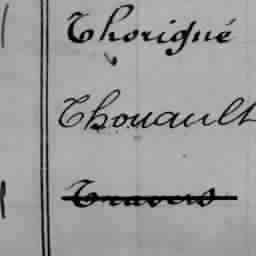 Thorigné
Thouault
Travers